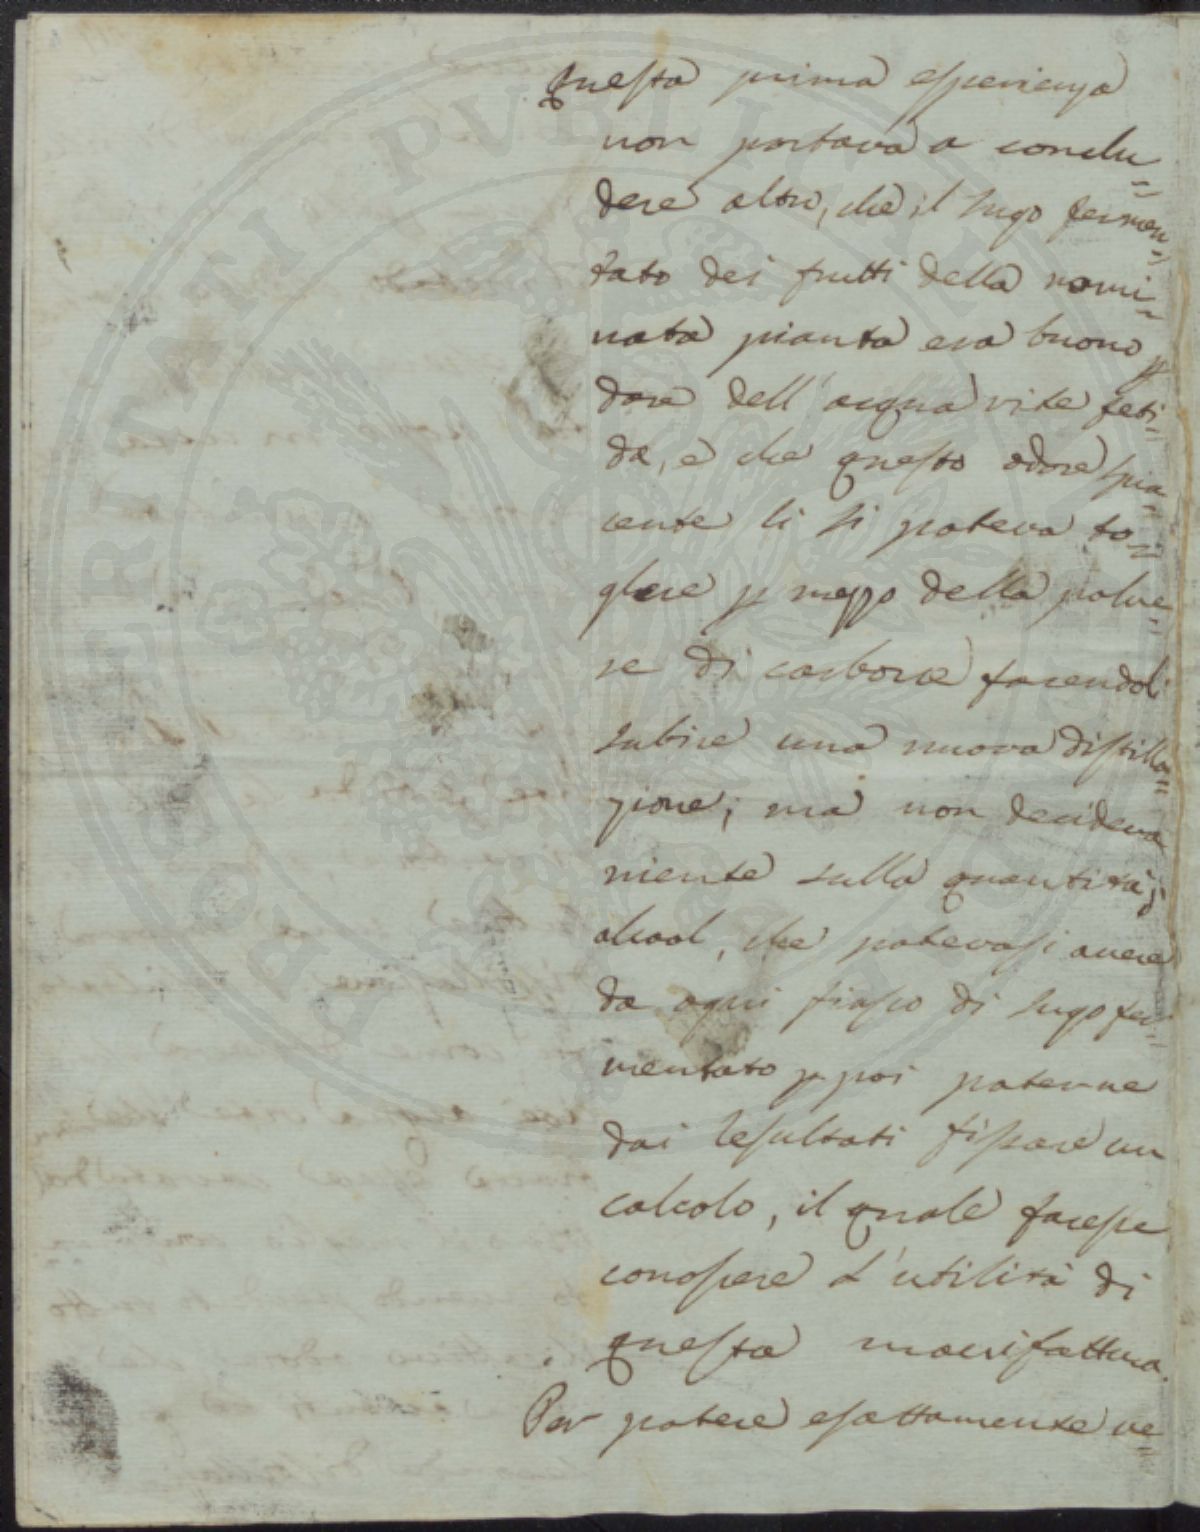 Questa prima esperienza
non portava a conclu=
dere altro, che il sugo fermen=
tato dei frutti della nomi=
nata pianta era buono p
dare dell'acqua vite feti=
da, e che questo odore spia=
cente li si poteva to=
gliere p mezzo della polve=
re di carbone facendoli
subire una nuova distilla=
zione; ma non decideva
niente sulla quantità
alcool, che potevasi avere
da ogni fiasco di sugo fer=
mentato p poi poterne
dai resultati fissare un
calcolo, il quale facesse
conoscere l'utilità di
questa manifattura.
Per potere esattamente ve=
PROSPERITATI PVBLICAE